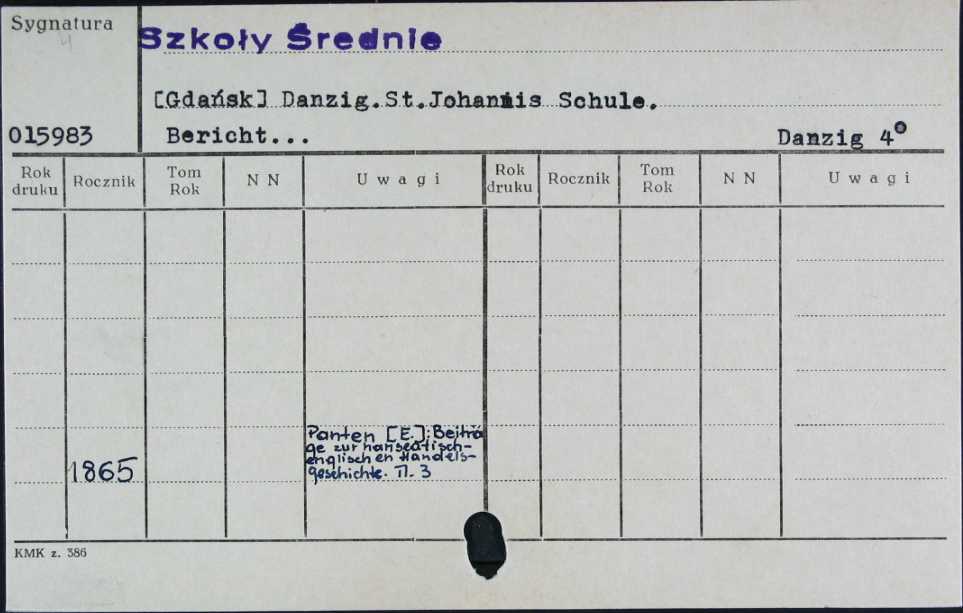 Sygnatura
4
Szkoły Średnie
[Gdańsk] Danzig.St.Johannis Schule.
015983 Bericht... Danzig 4°
Rok druku Rocznik Tom Rok N N U w a g i Rok druku Rocznik Tom Rok N N U w a g i
Panten [E.]: Beiträ
ge zur hanseatisch-
englischen Handels-
1865 geschichte. Tl. 3
KMK z. 386